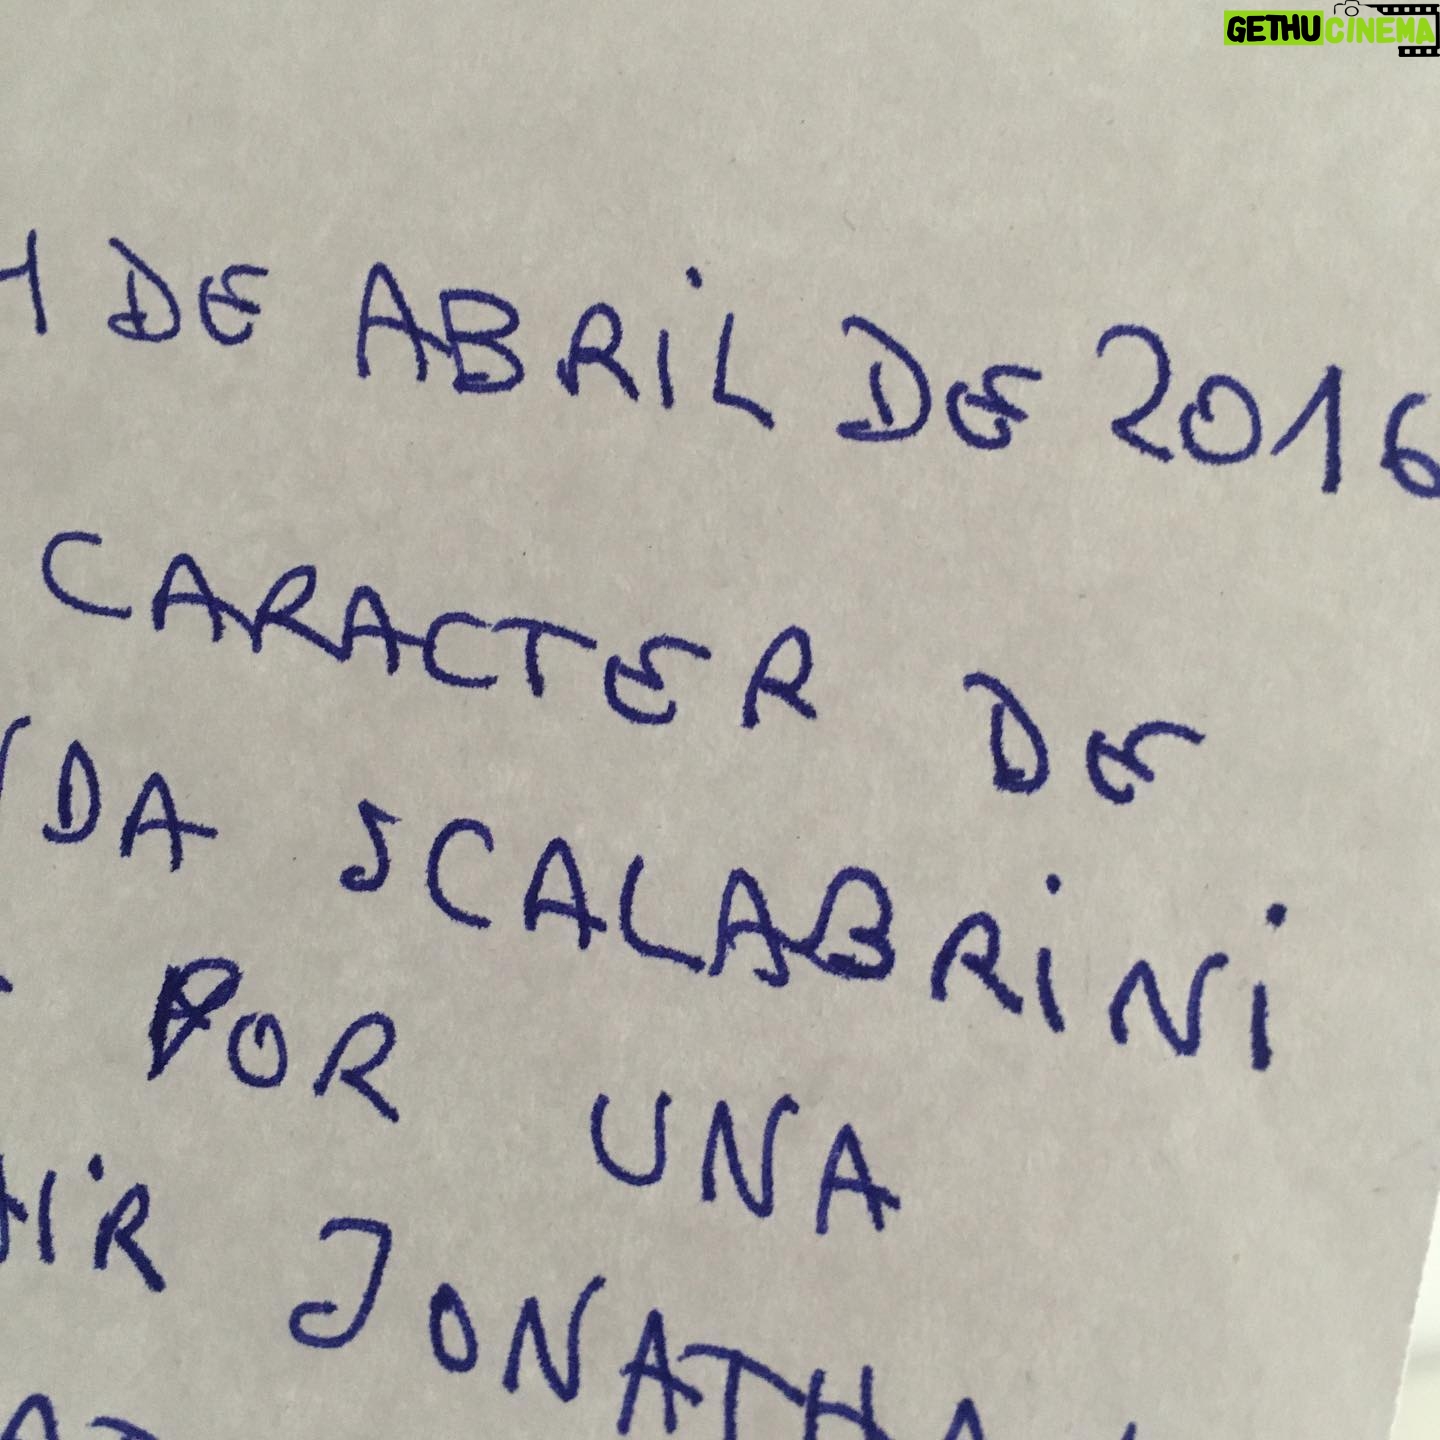 GETHUCINEMA
1 DE ABRIL DE 2016
CARACTER DE
DA SCALABRINI
POR UNA
JONATHA